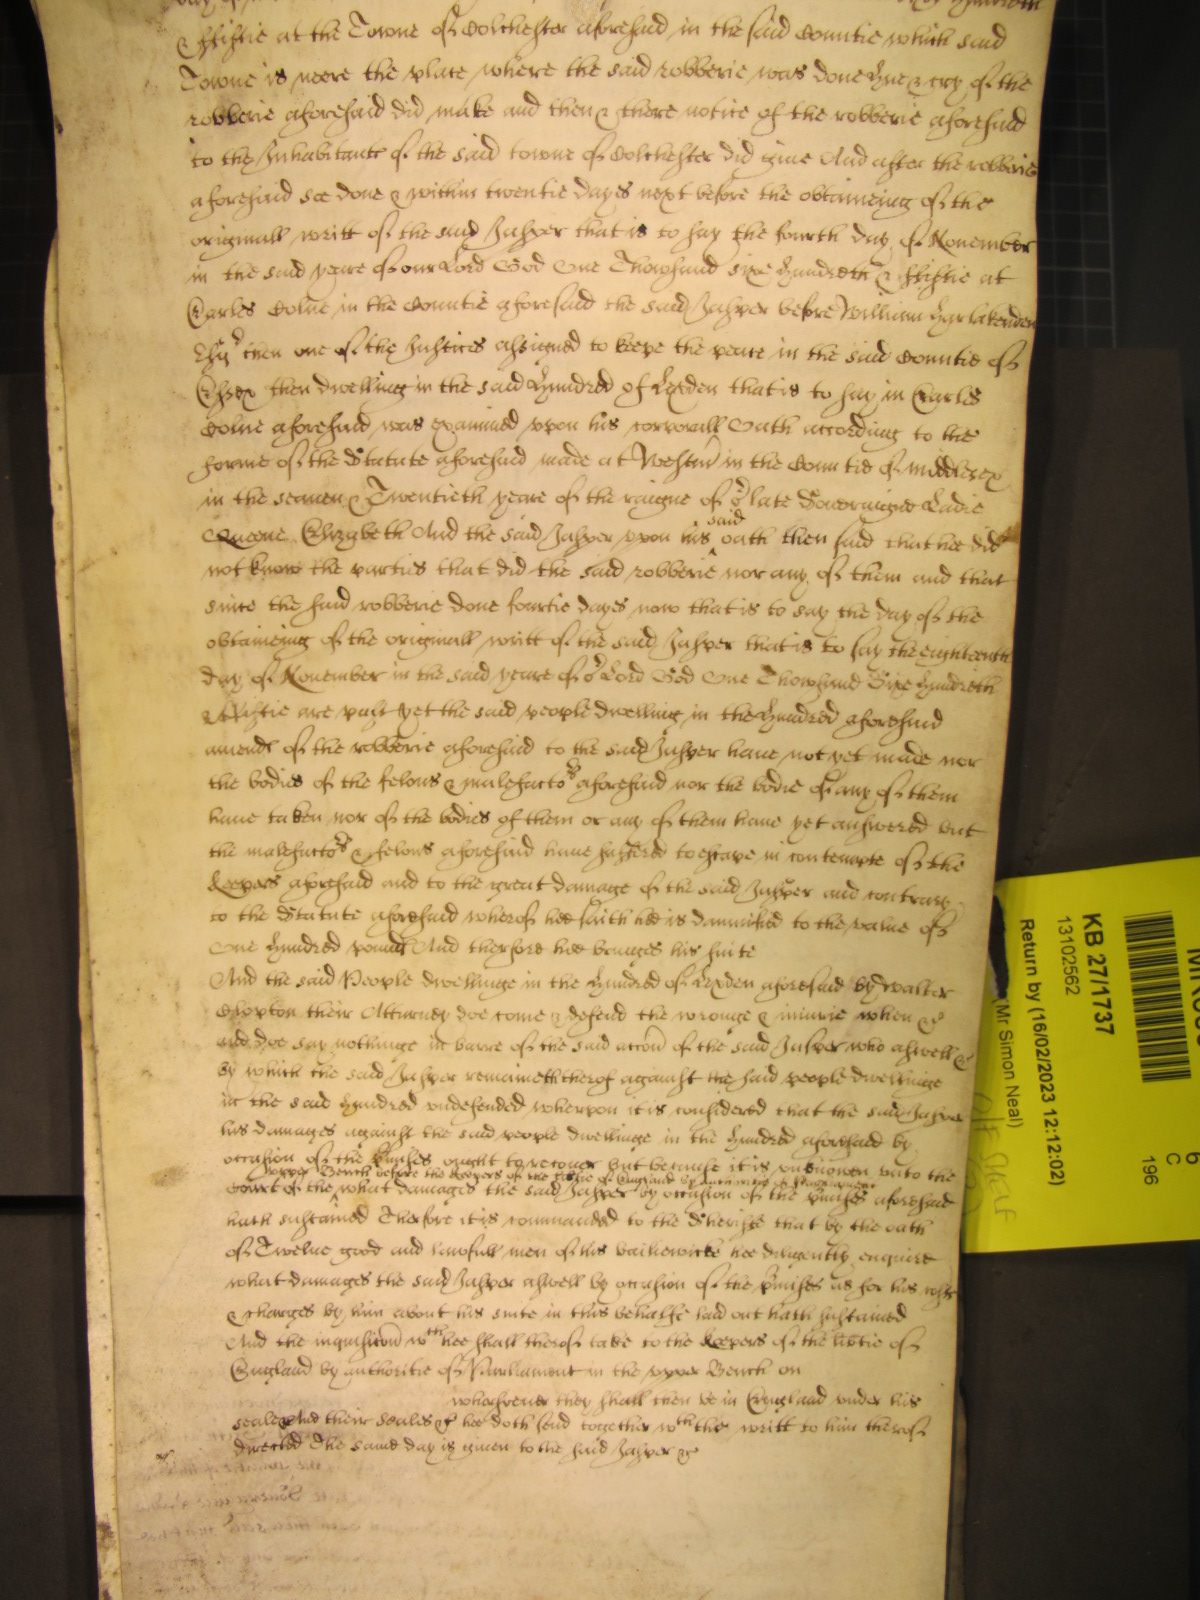 & ffiftie at the Towne of Colchester aforesaid in the said Countie which said
Towne is neere the place where the said robberie was done Hue & cry of the
robberie aforesaid did make and then & there notice of the robberie aforesaid
to the Inhabitants of the said towne of Colchester did give And after the robberie
aforesaid soe done & within twentie dayes next before the obteineing of the
originall writt of the said Jasper that is to say the fourth day of November
in the said yeare of our Lord God One Thowsand sixe hundreth & ffiftie at
Earles Colne in the Countie aforesaid the said Jasper before William Harlakenden
Esqr then one of the Justices assigned to keepe the peace in the said Countie of
Essex then dwelling in the said Hundred of Lexden that is to say in Earles
Colne aforesaid was examined upon his corporall Oath according to the
forme of the Statute aforesaid made at Westm in the Countie of Middlesex
in the seaven & Twentieth yeare of the raigne of or late Soveraigne Ladie
Queene Elizabeth And the said Jasper upon his said oath then said that hee did
not know the parties that did the said robberie nor any of them and that
since the said robberie done fourtie dayes now that is to say the day of the
obteineing of the originall writt of the said Jasper that is to say the eighteenth
day of November in the said yeare of or Lord God One Thowsand Sixe hundreth
& ffiftie are past yet the said people dwelling in the Hundred aforesaid
amends of the robberie aforesaid to the said Jasper have not yet made nor
the bodies of the felons & malefactors aforesaid nor the bodie of any of them
have taken nor of the bodies of them or any of them have yet answered but
the malefactors & felons aforesaid have suffered to escape in contempte of the
Keepers aforesaid and to the great damage of the said Jasper and contrary
to the Statute aforesaid wherof hee saith hee is damnified to the value of
One hundred pounds And therfore hee bringes his suite
And the said People dwellinge in the Hundred of Lexden aforesaid by Walter
Clopton their Atturney doe come & defend the wronge & iniurie when &c
and doe say nothinge in barre of the said accon of the said Jasper
by which the said Jasper remaineth therof against the said people dwellinge
in the said Hundred undefended wherupon it is considered that the said Jasper
his damages against the said people dwellinge in the Hundred aforesaid by
occasion of the p'misses ought to recover but because it is unknowen unto the
upper Bench before the Keepers of the libtie of England by authoritie of Parliament
Court of the what damages the said Jasper by occasion of the p'misses aforesaid
hath sustained Therfore it is commanded to the Sheriffe that by the oath
of Twelve good and lawfull men of his bailiewicke hee diligently enquire
what damages the said Jasper aswell by occasion of the p'misses as for his costs
& charges by him about his suite in this behalfe laid out hath sustained
And the inquisicon wch hee shall therof take to the Keepers of the libtie of
England by authoritie of Parliament in the upper Bench on
whersoever they shall then be in England under his
seale And their seales & hee doth send together wth the writt to him therof
directed The same day is given to the said Jasper &c
KB 27/1737
13102562
Return by (16/02/2023 12:12:02)
(Mr Simon Neal)
C
196